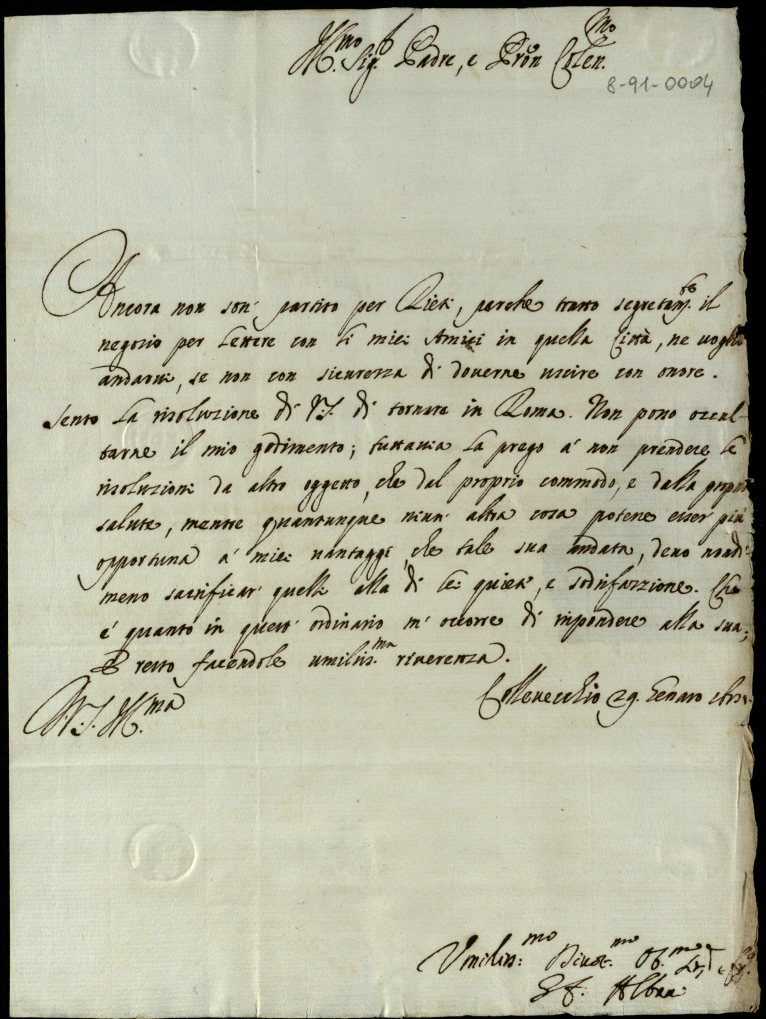 Ill.mo Sig.r Padre, e Pron Colen.mo
8-91-0004
Ancora non son' partito per Rieti, perche tratto segretam.te il
negozio per lettere con li miei Amici in quella Città, ne voglio
andarvi, se non con sicurezza di doverne uscire con onore.
Sento la risoluzione di V.S. di tornare in Roma. Non posso occul-
tarne il mio godimento; tuttavia la prego a' non prendere le
risoluzioni da altro oggetto, che dal proprio commodo, e dalla propria
salute, mentre quantunque niun' altra cosa potesse esser più
opportuna a' miei vantaggi, che tale sua andata, devo nondi-
meno sacrificar' quelli alla di lei quiete, e sodisfazzione. Che
é quanto in quest' ordinario m' occorre di rispondere alla sua,
E resto facendole umiliss.ma riverenza.
V.S. Ill.ma
Collevecchio 29. Genaro
Umiliss.mo Devot.mo Ob.mo
Albani